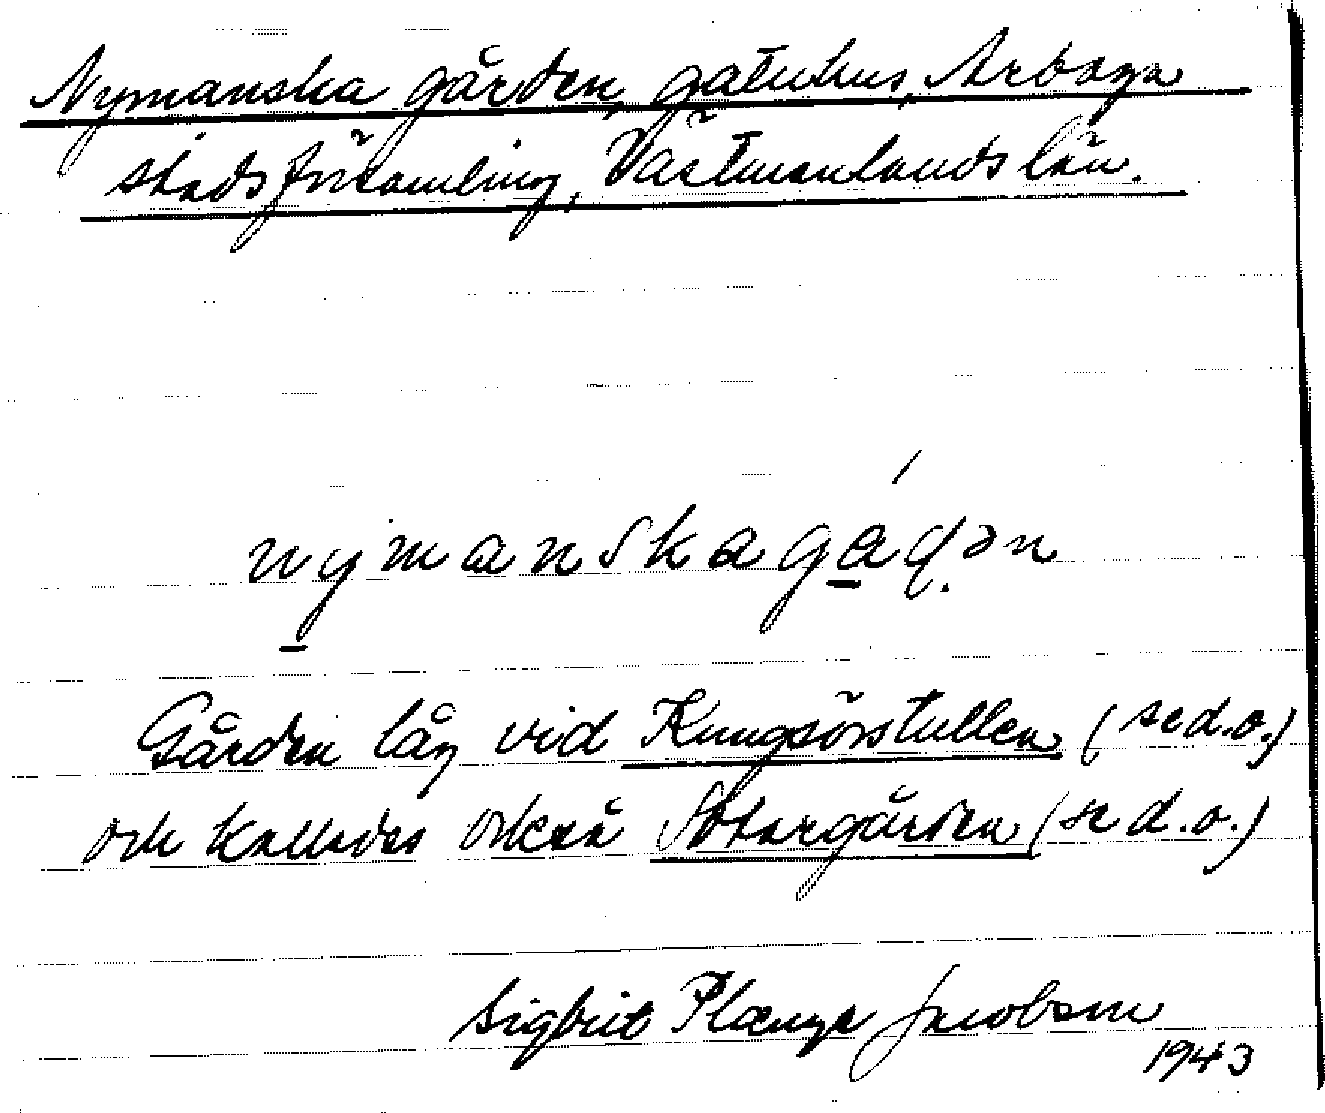 Nymanska gården, gatuhus, Arboga
stadsförsamling, Västmanlands län.
nymanskagáḍən
Gården låg vid Kungsörstullen (se d.o.)
och kallades också Sotargården (se d.o.)
Sigbrit Plænge Jacobson
1943